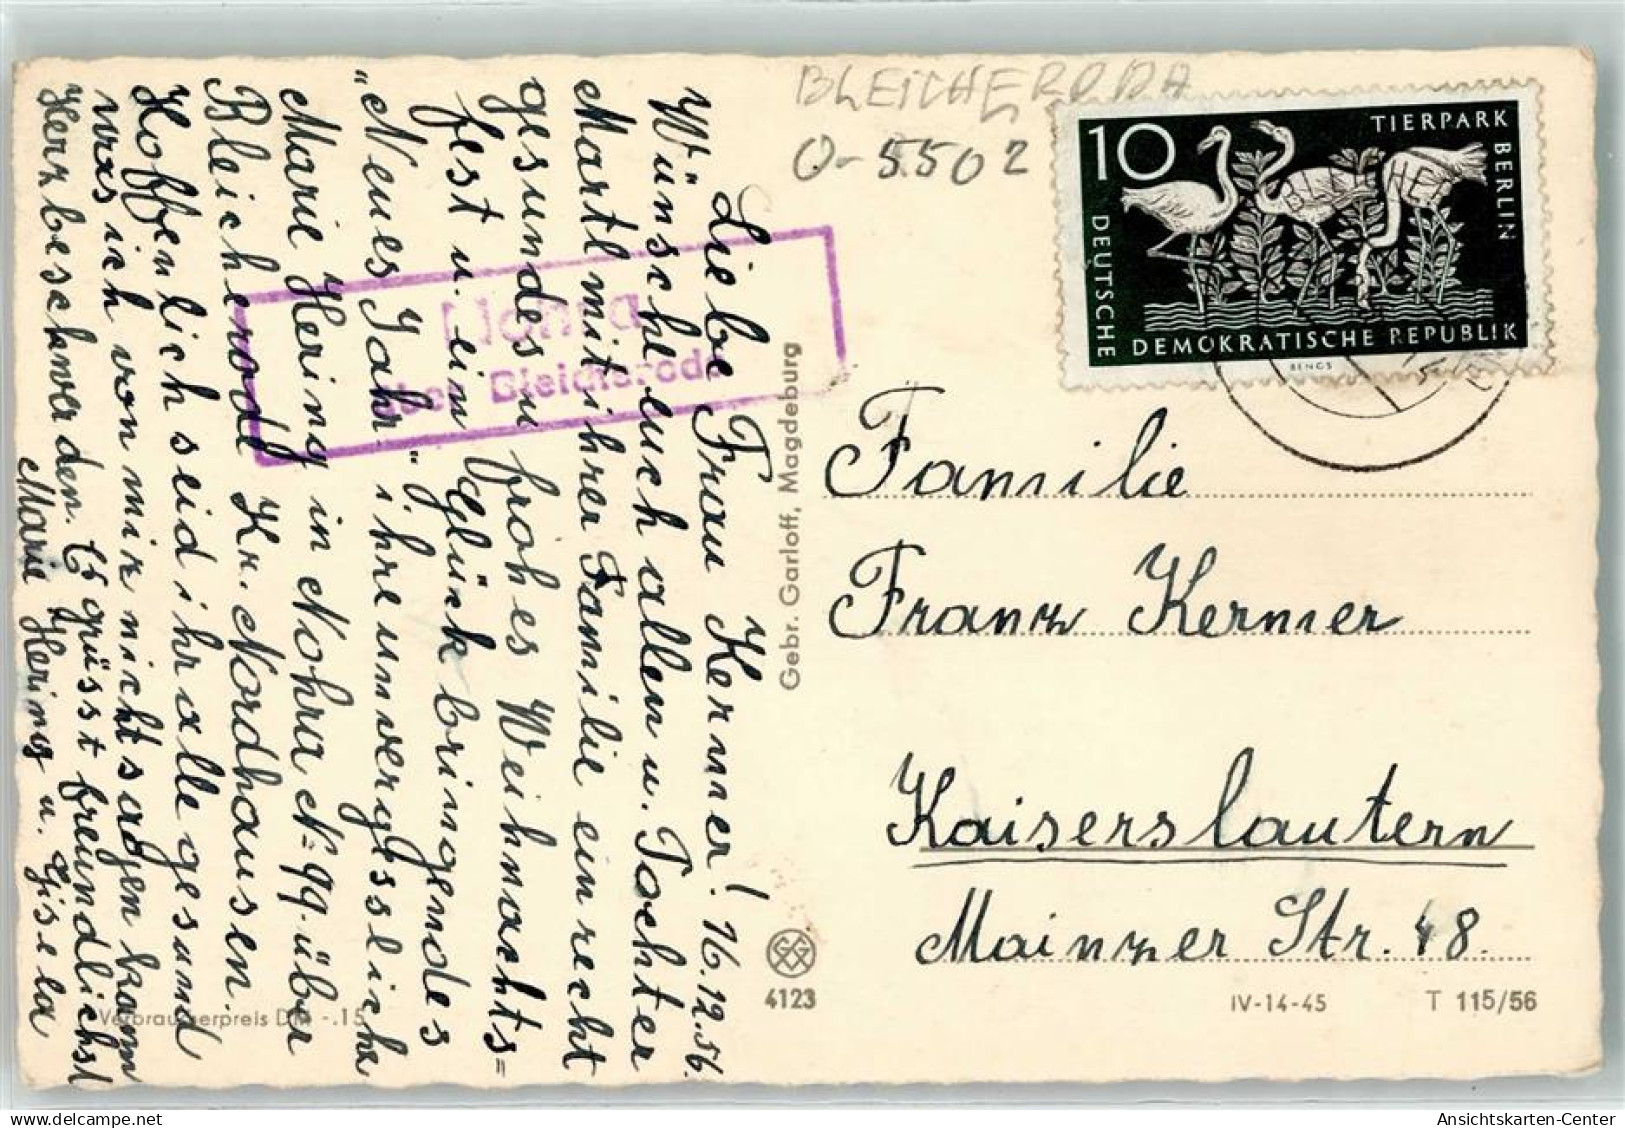 BLEICHERODA
O-5502
10
TIERPARK BERLIN
DEUTSCHE
DEMOKRATISCHE REPUBLIK
BENGS
Nohra
über Bleicherode
Liebe Frau Kernier! 16.12.56.
Wünsche euch allen u. Tochter
Martl mit ihrer Familie ein recht
gesundes u frohes Weihnachts=
fest u. ein Glück bringendes
"Neues Jahr". ihre unvergessliche
Marie Hering in Nohra N= 99 über
Bleicherode Kr. Nordhausen.
Hoffenlich seid ihr alle gesund
was ich von mir nicht sagen kann
Herzbeschwerden. Es grüsst freundlichst
Marie Hering u. Gisela
Gebr. Garloff, Magdeburg
Familie
Franz Kernier
Kaiserslautern
Mainzer Str. 48.
4123
IV-14-45
T 115/56
Verbraucherpreis DM -.15
Ansichtskarten-Center